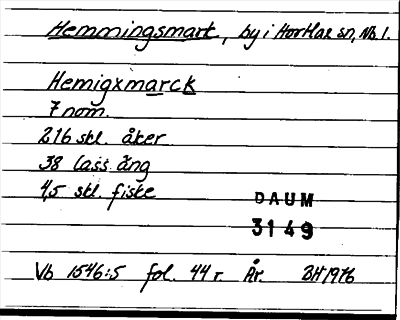 Hemmingsmark, by i Hortlax sn, Nb l.
Hemigxmarck
7 nom.
216 skl. åker
38 lass äng
4,5 skl. fiske
DAUM
3149
Vb 1546:5 fol. 44 r. År. BH 1976